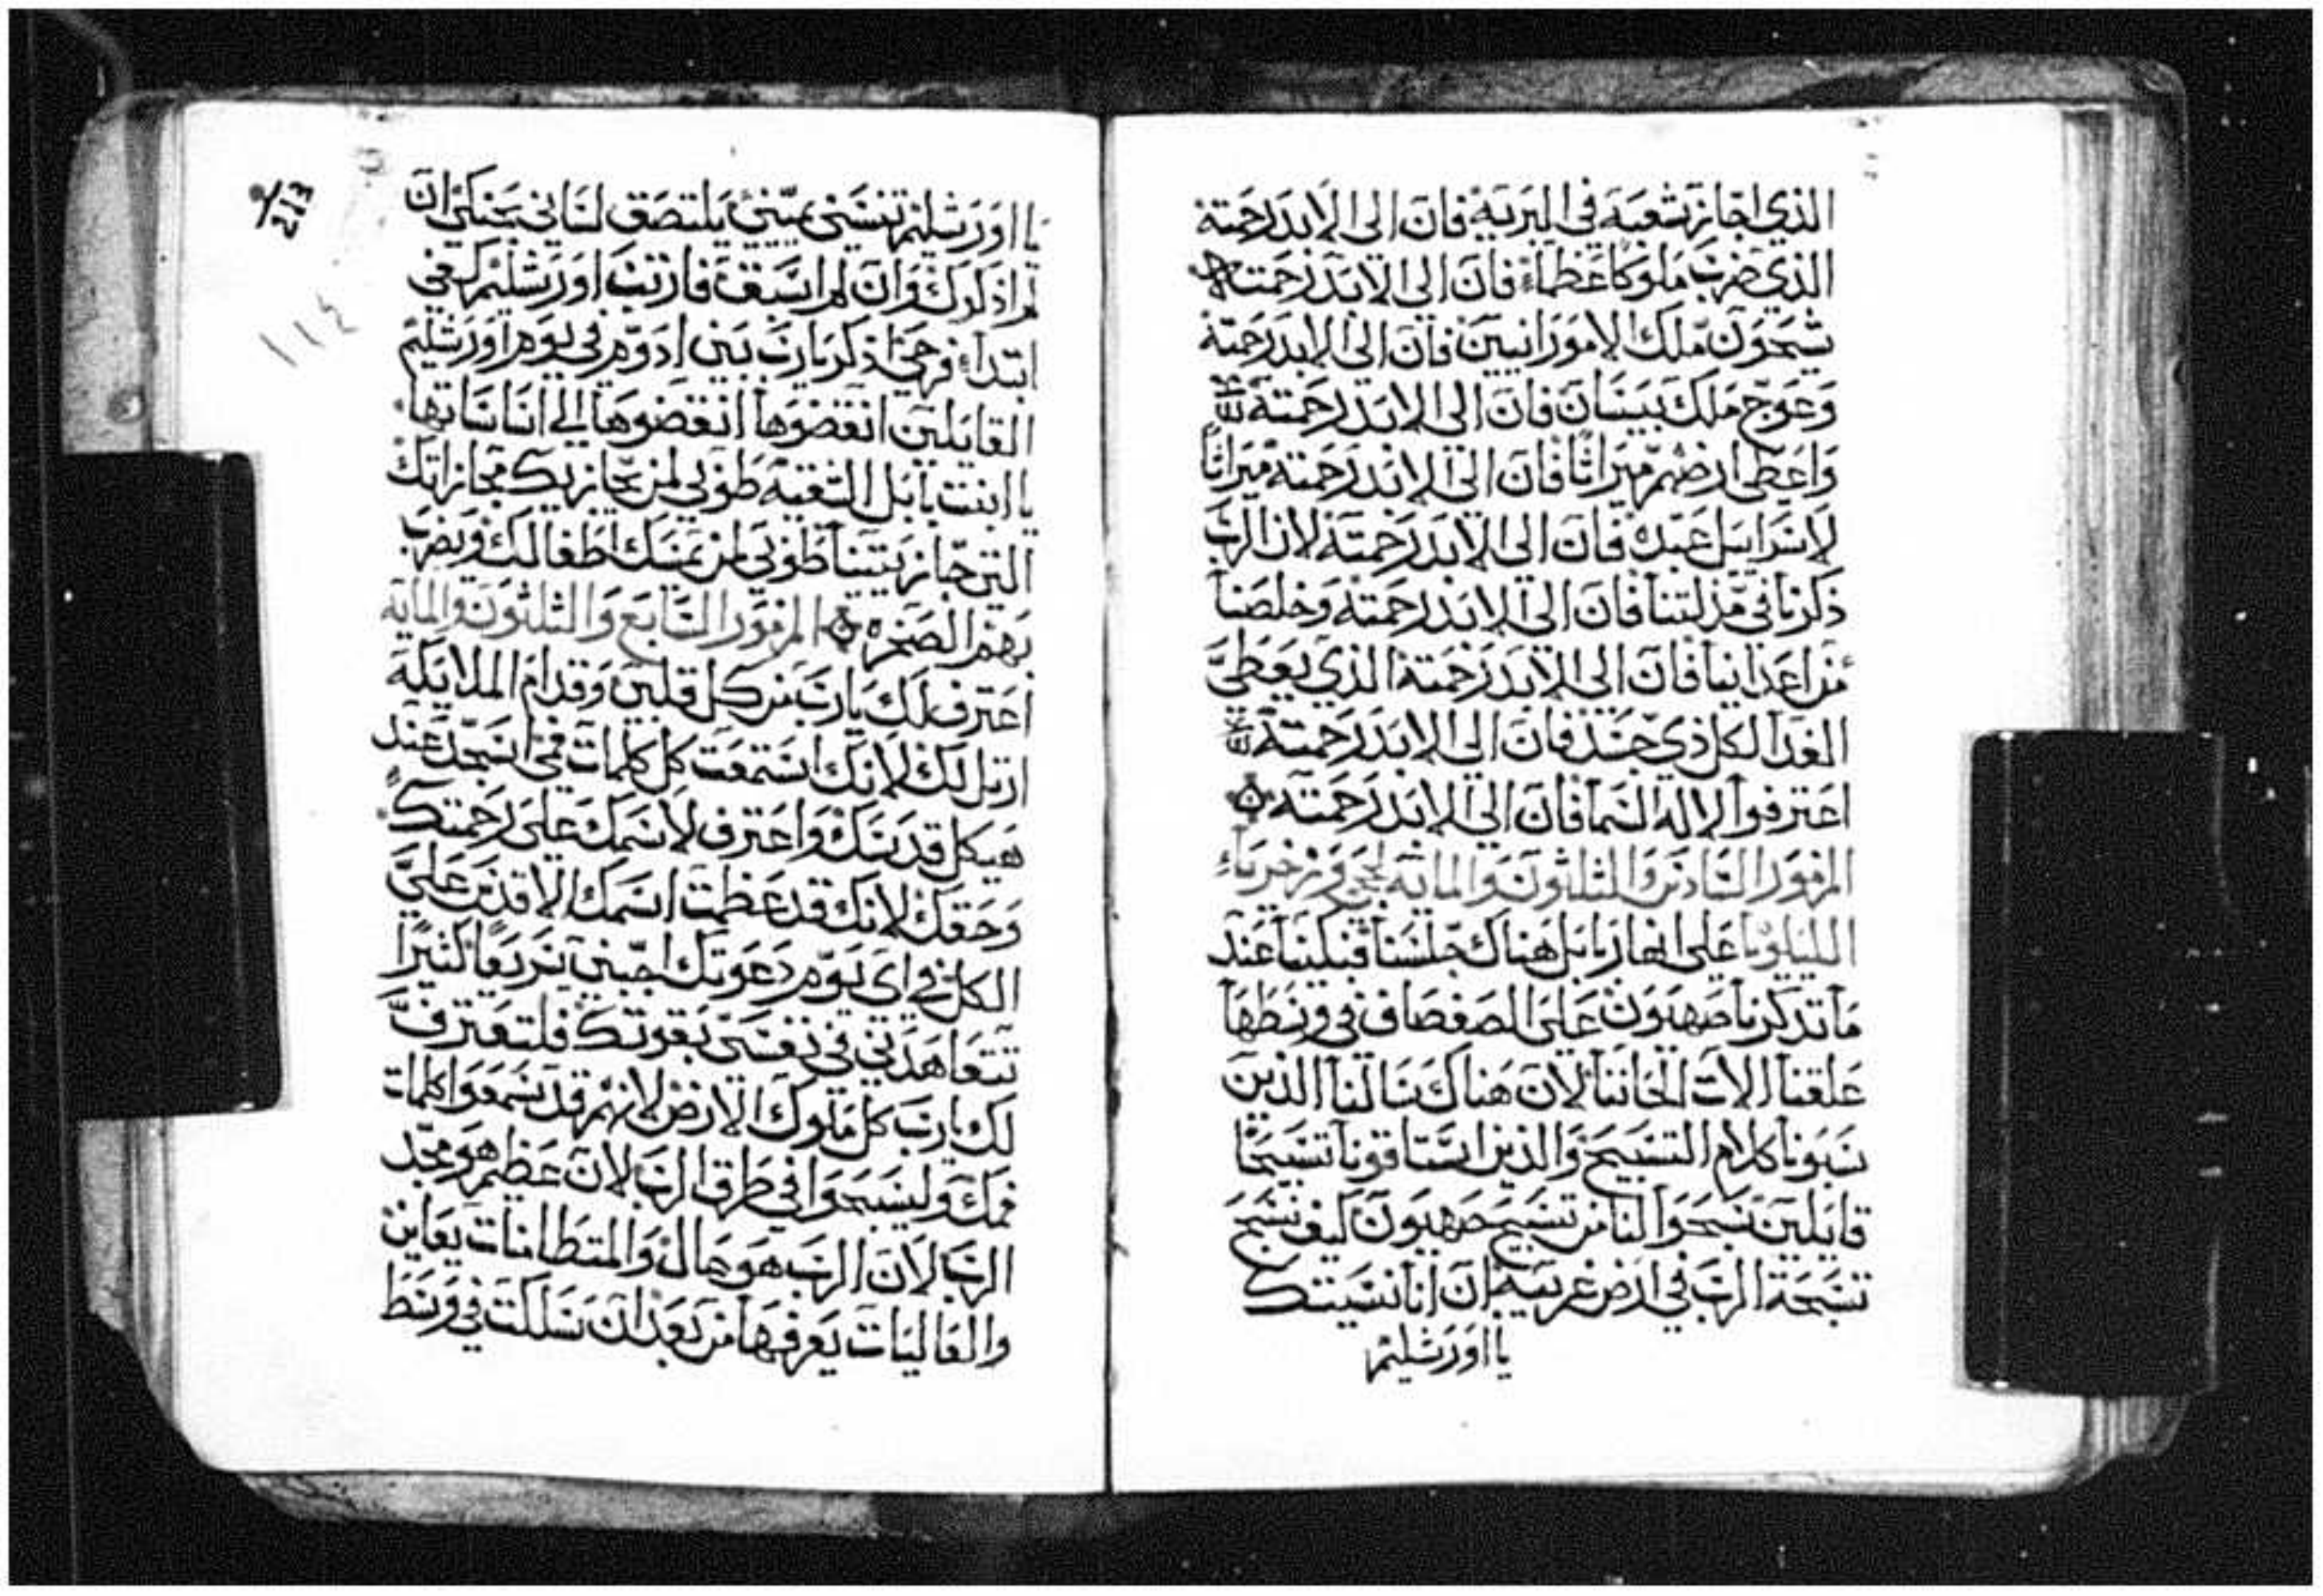 الذي اجاز شعبه في البريه فان الى الابد رحمته
الذي ضرب ملوكا عظماء فان الي الابد رحمته
شيحون ملك الامورانيين فان الى الابد رحمته
وعوج ملك بيسان فان الى الابد رحمته
واعطى ارضهم ميراثا فان الي الابد رحمته ميراثا
لاسراييل عبده فان الى الابد رحمته لان الرب
ذكرنا في مذلتنا فان الي الابد رحمته وخلصنا
من اعداينا فان الي الابد رحمته الذي يعطي
الغدا لكل ذي جسد فان الي الابد رحمته
اعترفوا لاله السما فان الي الابد رحمته
المزمور السادس والثلثون والمايه لحجي وزخرياء
الليلويا على انهار بابل هناك جلسنا فبكينا عند
ما تذكرنا صهيون على الصفصاف في وسطها
علقنا الات الحاننا لان هناك سالنا الذين
سبونا كلام التسبيح والذين استاقونا تسبيحا
قايلين سبحوا لنا من تسبيح صهيون كيف نسبح
تسبحة الرب في ارض غريبه ان انا نسيتك
يا اورشليم
213
١١٤
يا اورشليم تنسني يميني يلتصق لساني بحنكي ان
لم اذكرك وان لم اسبق فارتب اورشليم في
ابتداء فرحي اذكر يارب بني ادوم في يوم اورشليم
القايلين انقضوها انقضوها الي اساساتها
يا ابنت بابل الشقيه طوبي لمن يجازيك مجازاتك
التي جازيتينا طوبي لمن يمسك اطفالك ويضرب
بهم الصخره المزمور السابع والثلثون والمايه
اعترف لك يارب من كل قلبي وقدام الملايكه
ارتل لك لانك استمعت كل كلمات في اسجد عند
هيكل قدسك واعترف لاسمك على رحمتك
وحقك لانك قد عظمت اسمك الاقدس علي
الكل في اي يوم دعوتك اجبني سريعا كثيرا
تتعاهدني في نفسي بقوتك فلتعترف
لك يارب كل ملوك الارض لانهم قد سمعوا كلمات
فمك وليسبحوا في طرق الرب لان عظيم هو مجد
الرب لان الرب هو عال والمتطامنات يعاين
والعاليات يعرفها من بعد ان سلكت في وسط